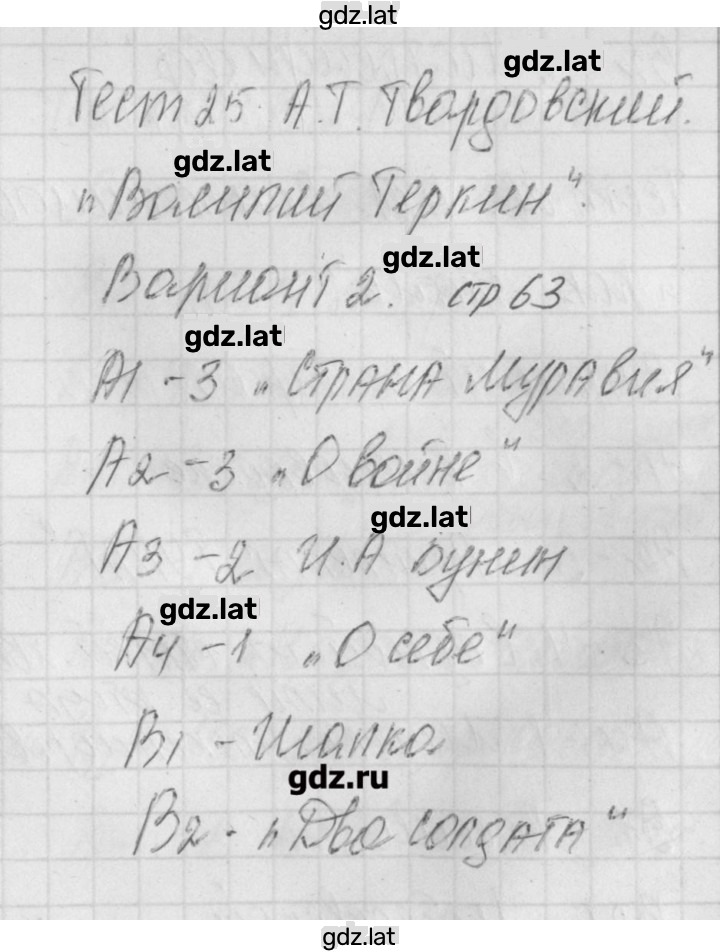 gdz.lat
gdz.lat
Тест 25. А.Т. Твардовский.
gdz.lat
„Василий Теркин“.
gdz.lat
Вариант 2. стр 63
gdz.lat
А1 - 3 „Страна Муравия“
А2 - 3 „О войне“
gdz.lat
А3 - 2 И.А Бунин
gdz.lat
А4 - 1 „О себе“
В1 - Шапка
gdz.ru
В2 - „Два солдата“
gdz.lat